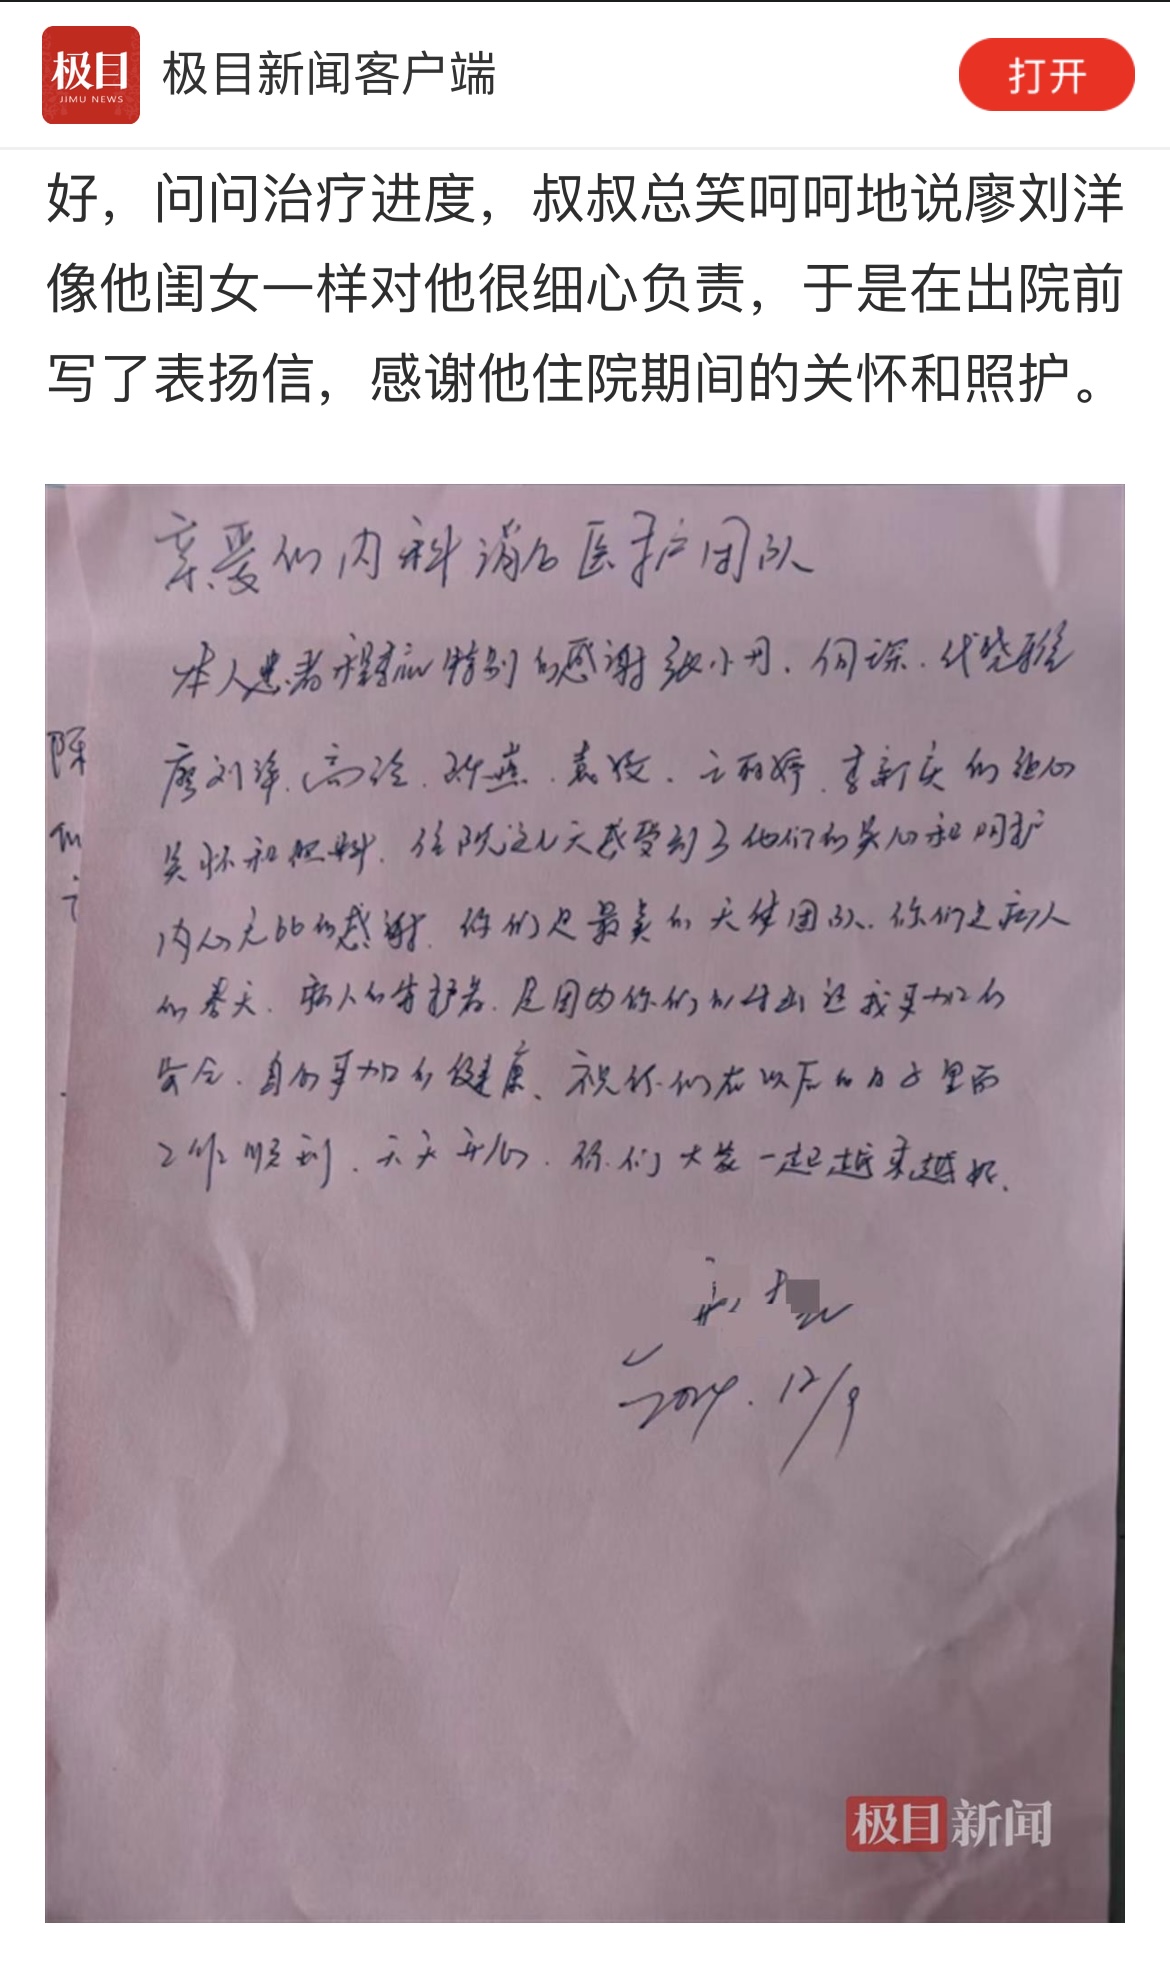 极目
JIMU NEWS
极目新闻客户端
打开
好，问问治疗进度，叔叔总笑呵呵地说廖刘洋
像他闺女一样对他很细心负责，于是在出院前
写了表扬信，感谢他住院期间的关怀和照护。
亲爱的内科消化医护团队
本人患者 特别的感谢张小丹、何琛、代晓雅
廖刘洋、高玲、 燕、袁 、 丽婷、李新庆的细心
关怀和照料、住院这几天感受到了他们的关心和 护
内心无比的感谢、你们是最美的天使团队、你们是病人
的春天、病人的守护者、是因为你们的付出 我更加的
安全、 更加的健康、祝你们在以后的日子里面
工作顺利、天天开心、你们大家一起越来越好、
2024.12/9
陈
极目新闻